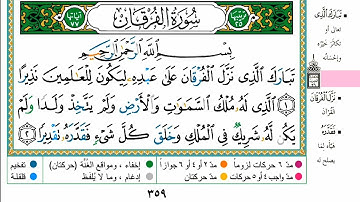 سُورَةُ الْفُرْقَانِ
ترتيبها ٢٥
آياتها ٧٧
بِسْمِ اللَّهِ الرَّحْمَٰنِ الرَّحِيمِ
تَبَارَكَ الَّذِى نَزَّلَ الْفُرْقَانَ عَلَىٰ عَبْدِهِ لِيَكُونَ لِلْعَالَمِينَ نَذِيرًا
١ الَّذِى لَهُ مُلْكُ السَّمَٰوَٰتِ وَالْأَرْضِ وَلَمْ يَتَّخِذْ وَلَدًا وَلَمْ
يَكُن لَّهُ شَرِيكٌ فِى الْمُلْكِ وَخَلَقَ كُلَّ شَىْءٍ فَقَدَّرَهُ تَقْدِيرًا ٢
تَبَارَكَ الَّذِى
تعالى أو
تكاثر خيره
وإحسانه
نَزَّلَ الْفُرْقَانَ
القرآن
فَقَدَّرَهُ
هيأه لما
يصلح له
مد ٦ حركات لزوماً
مد ٢ أو ٤ أو ٦ جوازاً
إخفاء، ومواقع الغنة (حركتان)
تفخيم
مد واجب ٤ أو ٥ حركات
مد حركتان
إدغام، وما لا يلفظ
قلقلة
٣٥٩